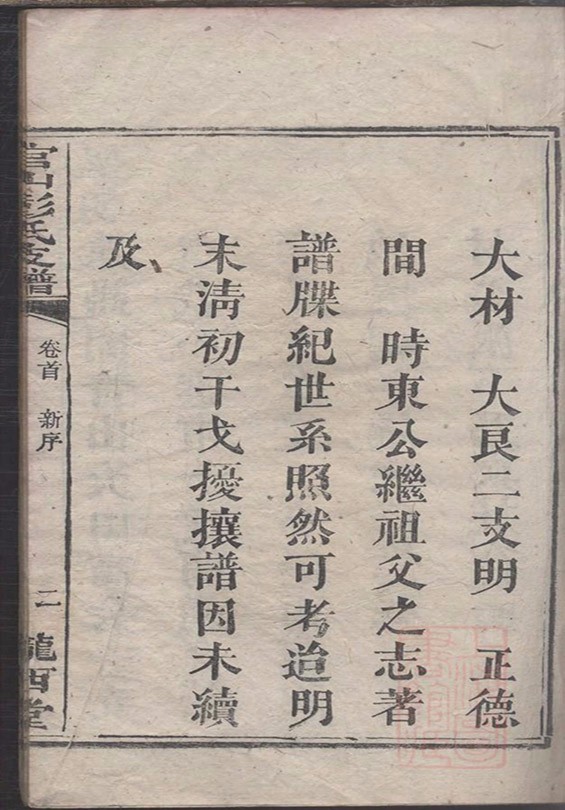 大材　大良二支明　正德
間　時東公繼祖父之志著
譜牒紀世系照然可考迨明
末清初干戈擾攘譜因未續
及
官山彭氏支譜
卷首　新序
二
隴西堂